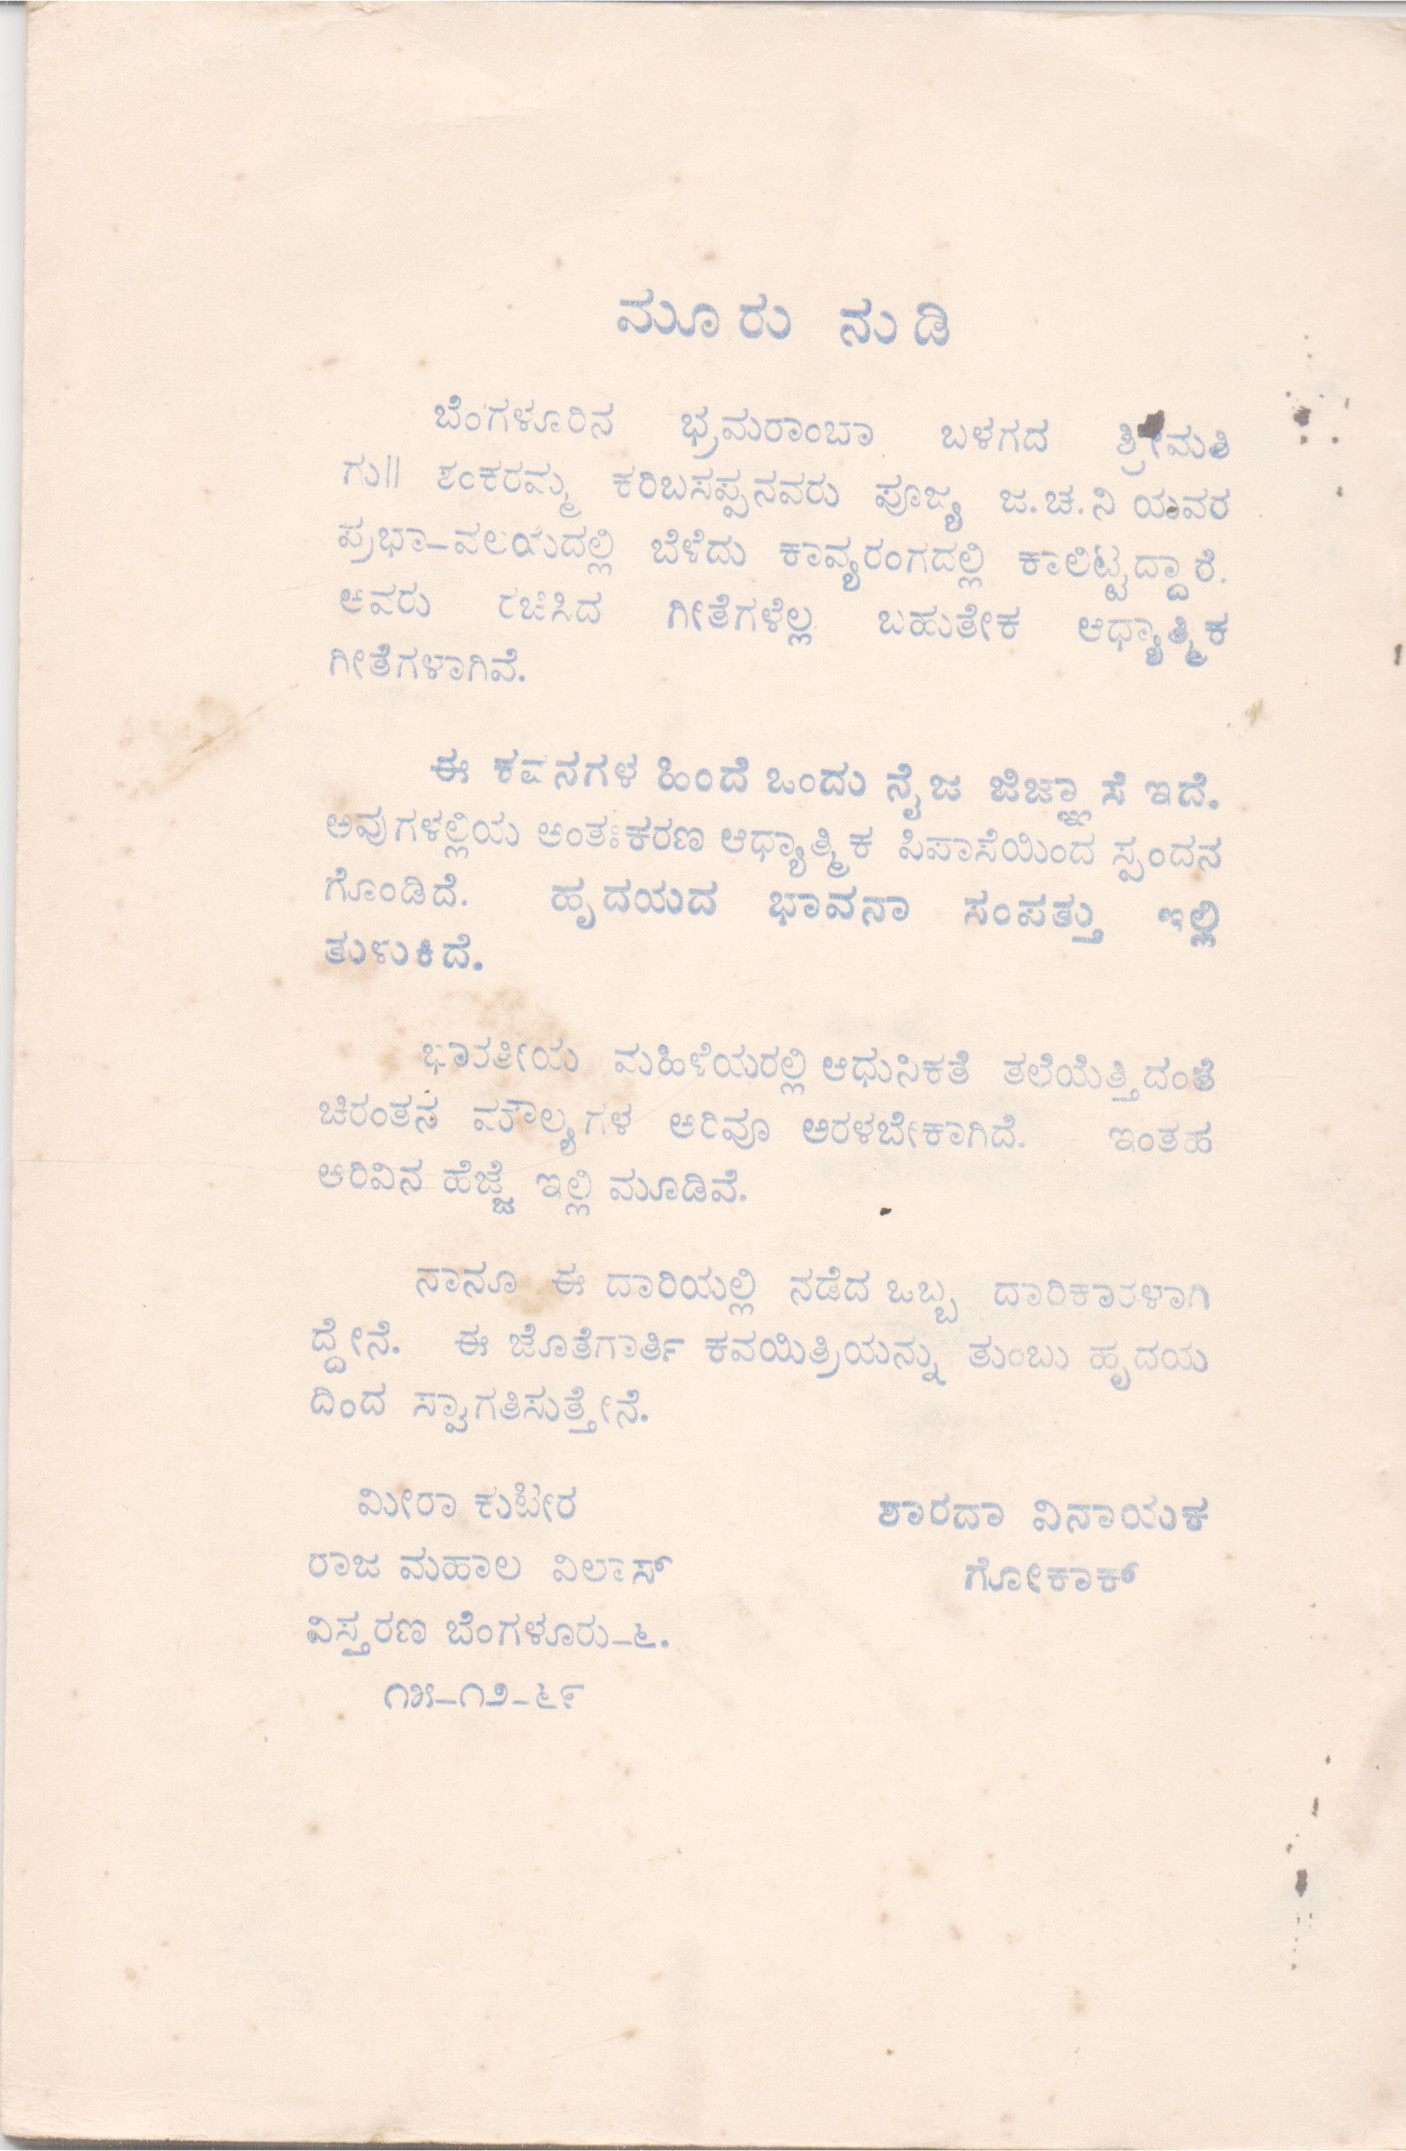 ಮೂರು ನುಡಿ
ಬೆಂಗಳೂರಿನ ಭ್ರಮರಾಂಬಾ ಬಳಗದ ಶ್ರೀಮತಿ
ಗು|| ಶಂಕರಮ್ಮ ಕರಿಬಸಪ್ಪನವರು ಪೂಜ್ಯ ಜ.ಚ.ನಿ ಯವರ
ಪ್ರಭಾ-ವಲಯದಲ್ಲಿ ಬೆಳೆದು ಕಾವ್ಯರಂಗದಲ್ಲಿ ಕಾಲಿಟ್ಟದ್ದಾರೆ.
ಅವರು ರಚಿಸಿದ ಗೀತೆಗಳೆಲ್ಲ ಬಹುತೇಕ ಆಧ್ಯಾತ್ಮಿಕ
ಗೀತೆಗಳಾಗಿವೆ.
ಈ ಕವನಗಳ ಹಿಂದೆ ಒಂದು ನೈಜ ಜಿಜ್ಞಾಸೆ ಇದೆ.
ಅವುಗಳಲ್ಲಿಯ ಅಂತಃಕರಣ ಆಧ್ಯಾತ್ಮಿಕ ಪಿಪಾಸೆಯಿಂದ ಸ್ಪಂದನ
ಗೊಂಡಿದೆ. ಹೃದಯದ ಭಾವನಾ ಸಂಪತ್ತು ಇಲ್ಲಿ
ತುಳುಕಿದೆ.
ಭಾರತೀಯ ಮಹಿಳೆಯರಲ್ಲಿ ಆಧುನಿಕತೆ ತಲೆಯೆತ್ತಿದಂತೆ
ಚಿರಂತನ ಮೌಲ್ಯಗಳ ಅರಿವೂ ಅರಳಬೇಕಾಗಿದೆ. ಇಂತಹ
ಅರಿವಿನ ಹೆಜ್ಜೆ ಇಲ್ಲಿ ಮೂಡಿವೆ.
ನಾನೂ ಈ ದಾರಿಯಲ್ಲಿ ನಡೆದ ಒಬ್ಬ ದಾರಿಕಾರಳಾಗಿ
ದ್ದೇನೆ. ಈ ಜೊತೆಗಾರ್ತಿ ಕವಯಿತ್ರಿಯನ್ನು ತುಂಬು ಹೃದಯ
ದಿಂದ ಸ್ವಾಗತಿಸುತ್ತೇನೆ.
ಮೀರಾ ಕುಟೀರ
ರಾಜ ಮಹಾಲ ವಿಲಾಸ್
ವಿಸ್ತರಣ ಬೆಂಗಳೂರು-೬.
೧೫-೧೨-೬೯
ಶಾರದಾ ವಿನಾಯಕ
ಗೋಕಾಕ್